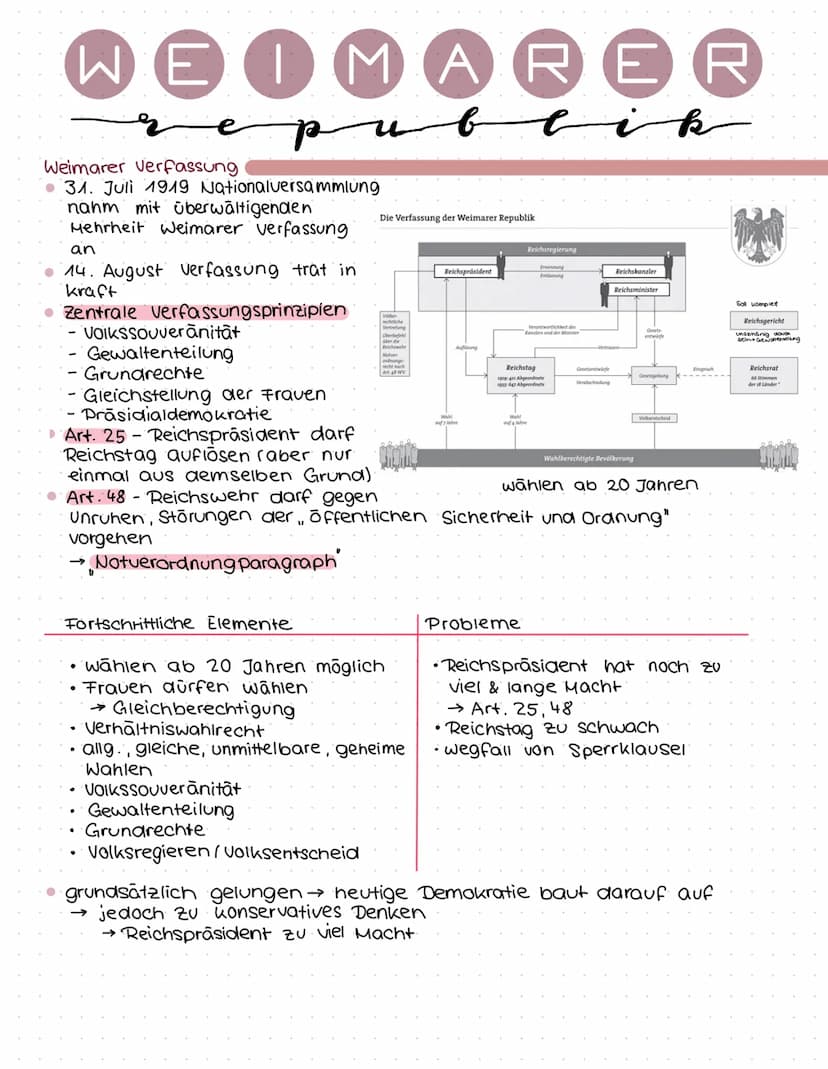 WEIMARER
republik
Weimarer Verfassung
31. Juli 1919 Nationalversammlung
nahm mit überwältigenden
Mehrheit Weimarer Verfassung
an
14. August Verfassung trat in
kraft
Zentrale Verfassungsprinzipien
- Volkssouveränität
- Gewaltenteilung
- Grundrechte
- Gleichstellung der Frauen
- Präsidialdemokratie
Art. 25 - Reichspräsident darf
Reichstag auflösen (aber nur
einmal aus demselben Grund)
Art. 48 - Reichswehr darf gegen
Unruhen, Störungen der „öffentlichen Sicherheit und Ordnung"
vorgehen
→ „Notverordnungparagraph"
Die Verfassung der Weimarer Republik
Reichsregierung
Reichspräsident
Ernennung
Entlassung
Reichskanzler
Reichsminister
Völker-
rechtliche
Vertretung
Oberbefehl
über die
Reichswehr
Notver-
ordnungs-
recht nach
Art. 48 WV
Auflösung
Verantwortlichkeit des
Kanzlers und der Minister
Vertrauen
Gesetz-
entwürfe
Reichsgericht
Reichstag
1919: 421 Abgeordnete
1933: 647 Abgeordnete
Gesetzentwürfe
Verabschiedung
Gesetzgebung
Einspruch
Reichsrat
66 Stimmen
der 18 Länder
Wahl
auf 7 Jahre
Wahl
auf 4 Jahre
Volksentscheid
Wahlberechtigte Bevölkerung
wählen ab 20 Jahren
Fortschrittliche Elemente
• wählen ab 20 Jahren möglich
• Frauen dürfen wählen
→ Gleichberechtigung
• Verhältniswahlrecht
• allg., gleiche, unmittelbare, geheime
Wahlen
• Volkssouveränität
• Gewaltenteilung
• Grundrechte
• Volksregieren / Volksentscheid
Probleme
• Reichspräsident hat noch zu
viel & lange Macht
→ Art. 25, 48
• Reichstag zu schwach
• wegfall von Sperrklausel
grundsätzlich gelungen → heutige Demokratie baut darauf auf
→ jedoch zu konservatives Denken
→ Reichspräsident zu viel Macht